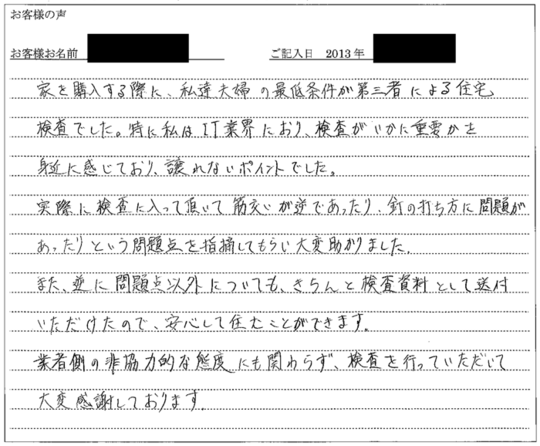 お客様の声
お客様お名前 ご記入日 2013年
家を購入する際に、私達夫婦の最低条件が第三者による住宅
検査でした。特に私はIT業界におり、検査がいかに重要かを
身近に感じており、譲れないポイントでした。
実際に検査に入って頂いて筋交いが逆であったり、釘の打ち方に問題が
あったりという問題点を指摘してもらい大変助かりました。
また、逆に問題点以外についても、きちんと検査資料として送付
いただけたので、安心して住むことができます。
業者側の非協力的な態度にも関わらず、検査を行っていただいて
大変感謝しております。